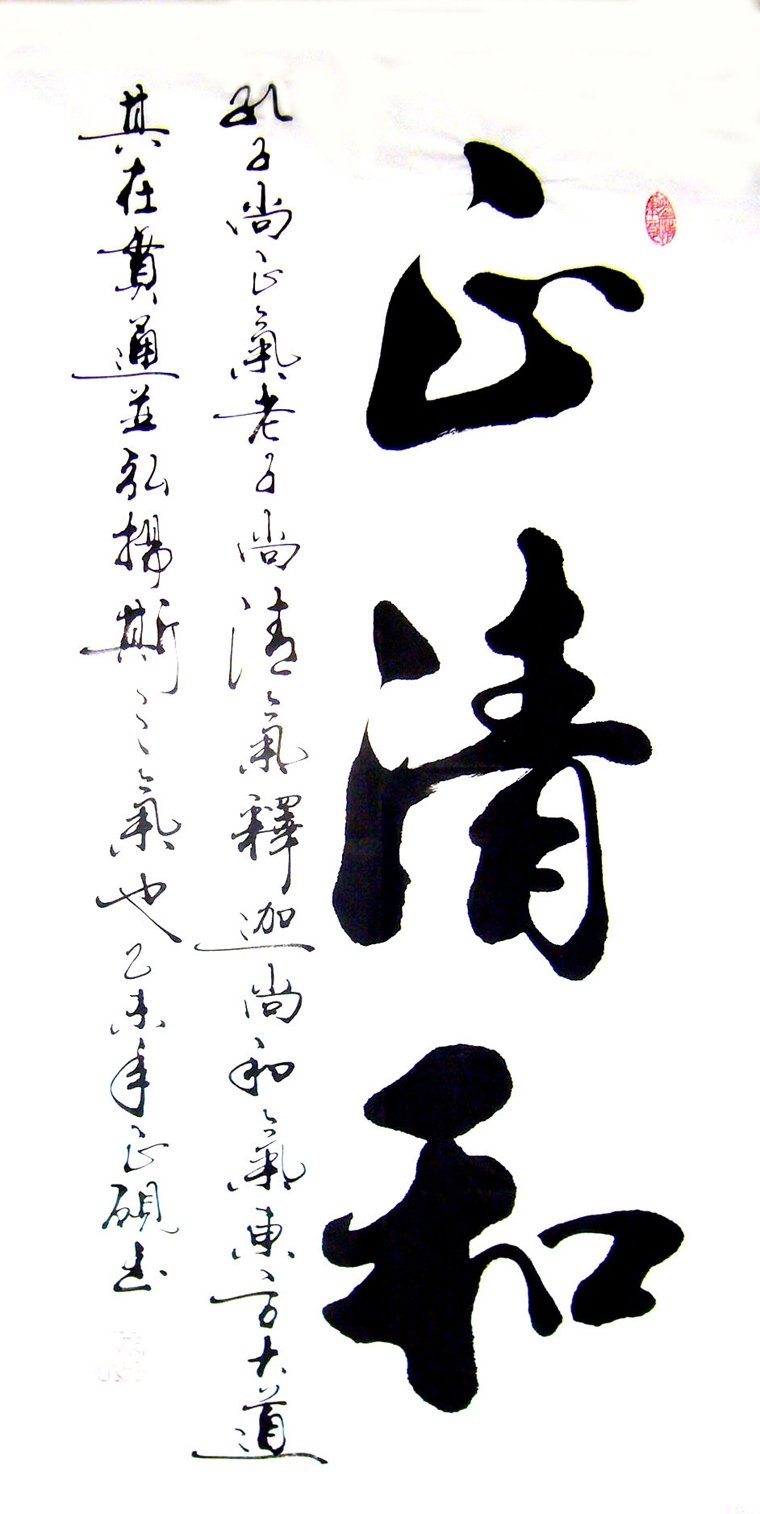 正清和
孔子尚正氣老子尚清氣釋迦尚和氣東方大道
其在貫通並弘揚斯之氣也乙未年正硯书